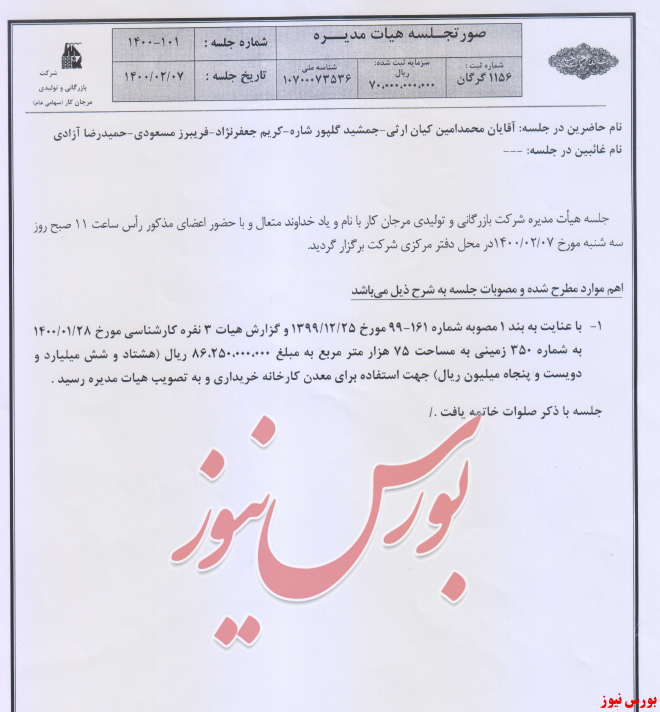 صورتجلسه هیات مدیره
شماره ثبت :
۱۱۵۶ گرگان
سرمایه ثبت شده:
ریال
۷۰,۰۰۰,۰۰۰,۰۰۰
شناسه ملی :
۱۰۷۰۰۰۷۳۵۳۶
شماره جلسه :
۱۴۰۰-۱۰۱
تاریخ جلسه :
۱۴۰۰/۰۲/۰۷
شرکت
بازرگانی و تولیدی
مرجان کار (سهامی عام)
نام حاضرین در جلسه: آقایان محمدامین کیان ارثی-جمشید گلپور شاره-کریم جعفرنژاد-فریبرز مسعودی-حمیدرضا آزادی
نام غائبین در جلسه: ---
جلسه هیأت مدیره شرکت بازرگانی و تولیدی مرجان کار با نام و یاد خداوند متعال و با حضور اعضای مذکور رأس ساعت ۱۱ صبح روز
سه شنبه مورخ ۱۴۰۰/۰۲/۰۷در محل دفتر مرکزی شرکت برگزار گردید.
اهم موارد مطرح شده و مصوبات جلسه به شرح ذیل می‌باشد
۱- با عنایت به بند ۱ مصوبه شماره ۱۶۱-۹۹ مورخ ۱۳۹۹/۱۲/۲۵ و گزارش هیات ۳ نفره کارشناسی مورخ ۱۴۰۰/۰۱/۲۸
به شماره ۳۵۰ زمینی به مساحت ۷۵ هزار متر مربع به مبلغ ۸۶،۲۵۰،۰۰۰،۰۰۰ ریال (هشتاد و شش میلیارد و
دویست و پنجاه میلیون ریال) جهت استفاده برای معدن کارخانه خریداری و به تصویب هیات مدیره رسید .
جلسه با ذکر صلوات خاتمه یافت ./
بورس نیوز
بورس نیوز